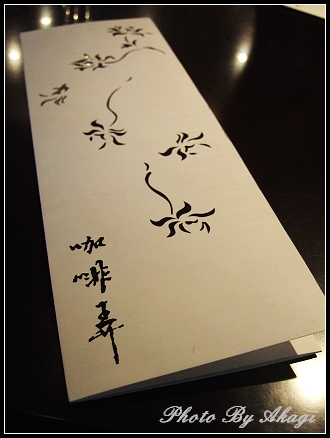 咖啡弄
Photo By Akagi